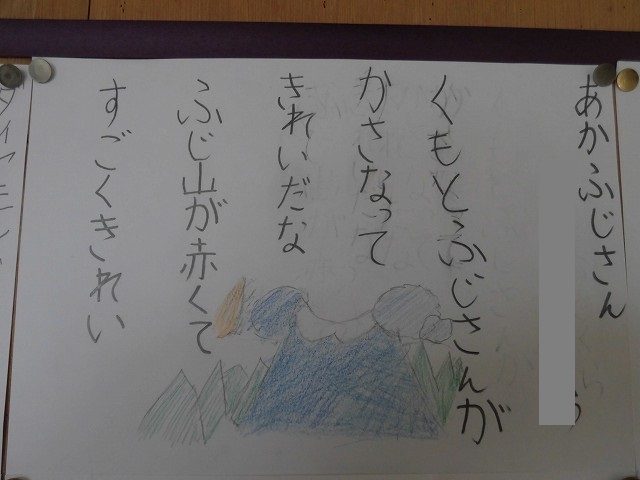 あかふじさん
う
くもとふじさんが
かさなって
きれいだな
ふじ山が赤くて
すごくきれい
ダイアモンド